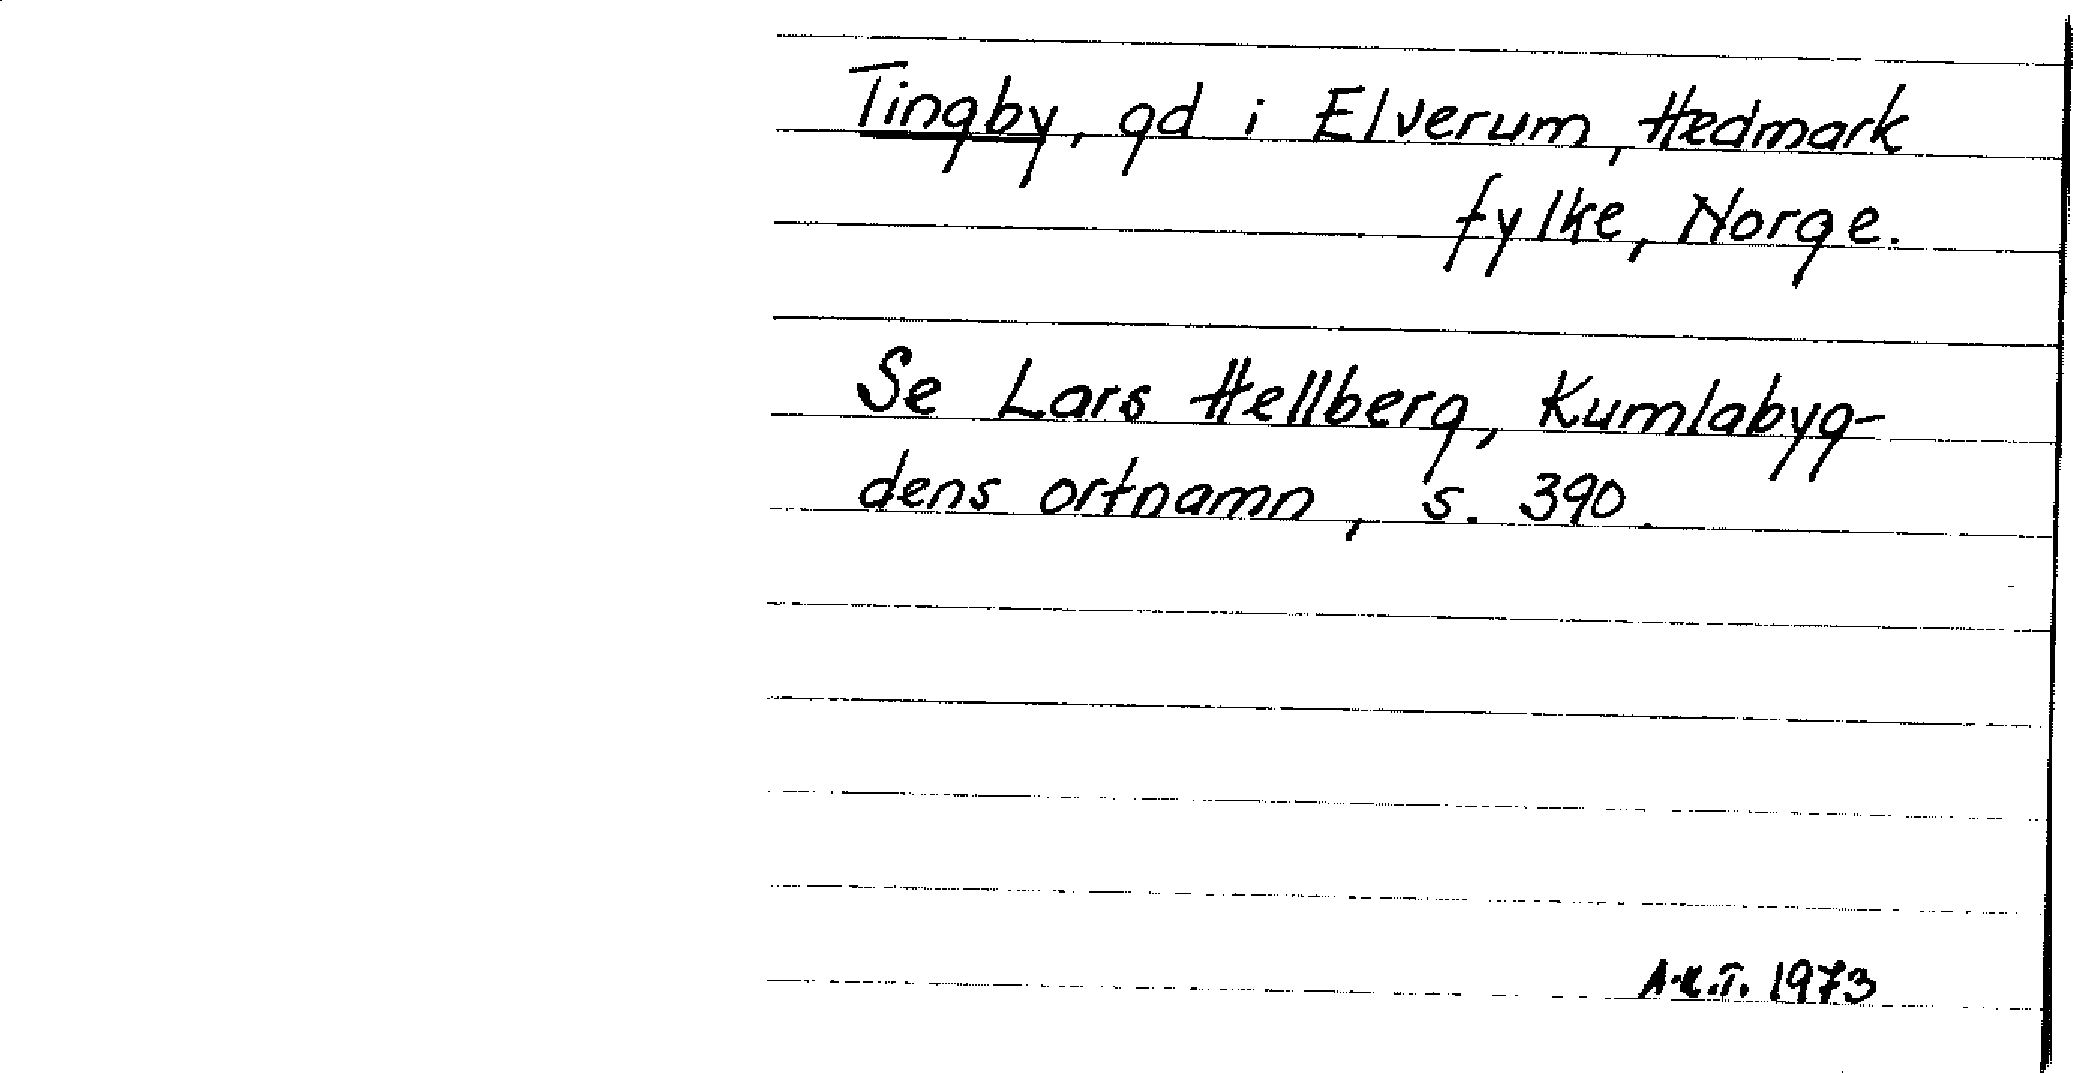 Tingby, gd i Elverum, Hedmark
fylke, Norge.
Se Lars Hellberg, Kumlabyg-
dens ortnamn, s. 390.
A-K.T. 1973